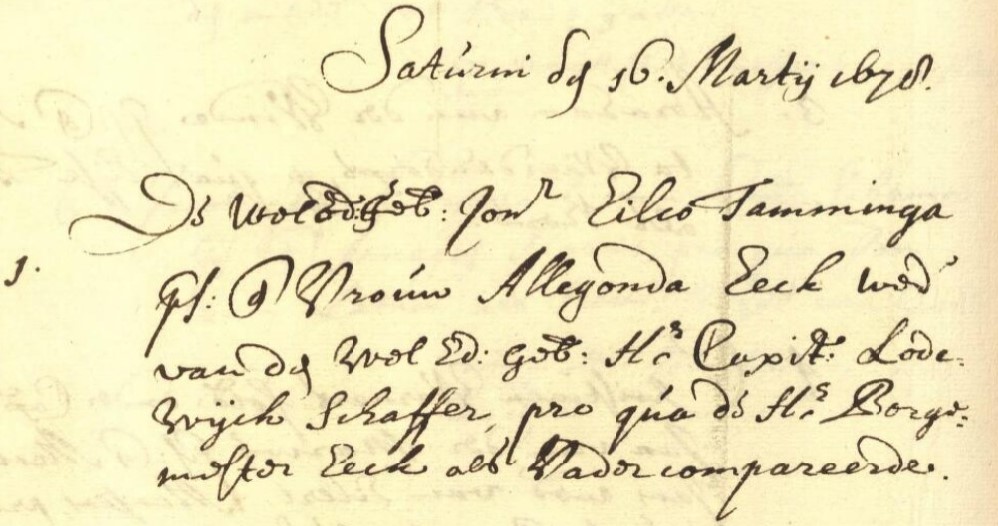 Saturni dẽ 16. Martij 1678.
De wolEdelgeb: Jonr Eilco Tamminga
1. ps: Vrouw Allegonda Eeck wed
van dẽ Wel Ed: Geb: Hr Capit: Lode-
wijch Schaffer, pro qua de Hr Borge-
mester Eeck als Vader compareerde.